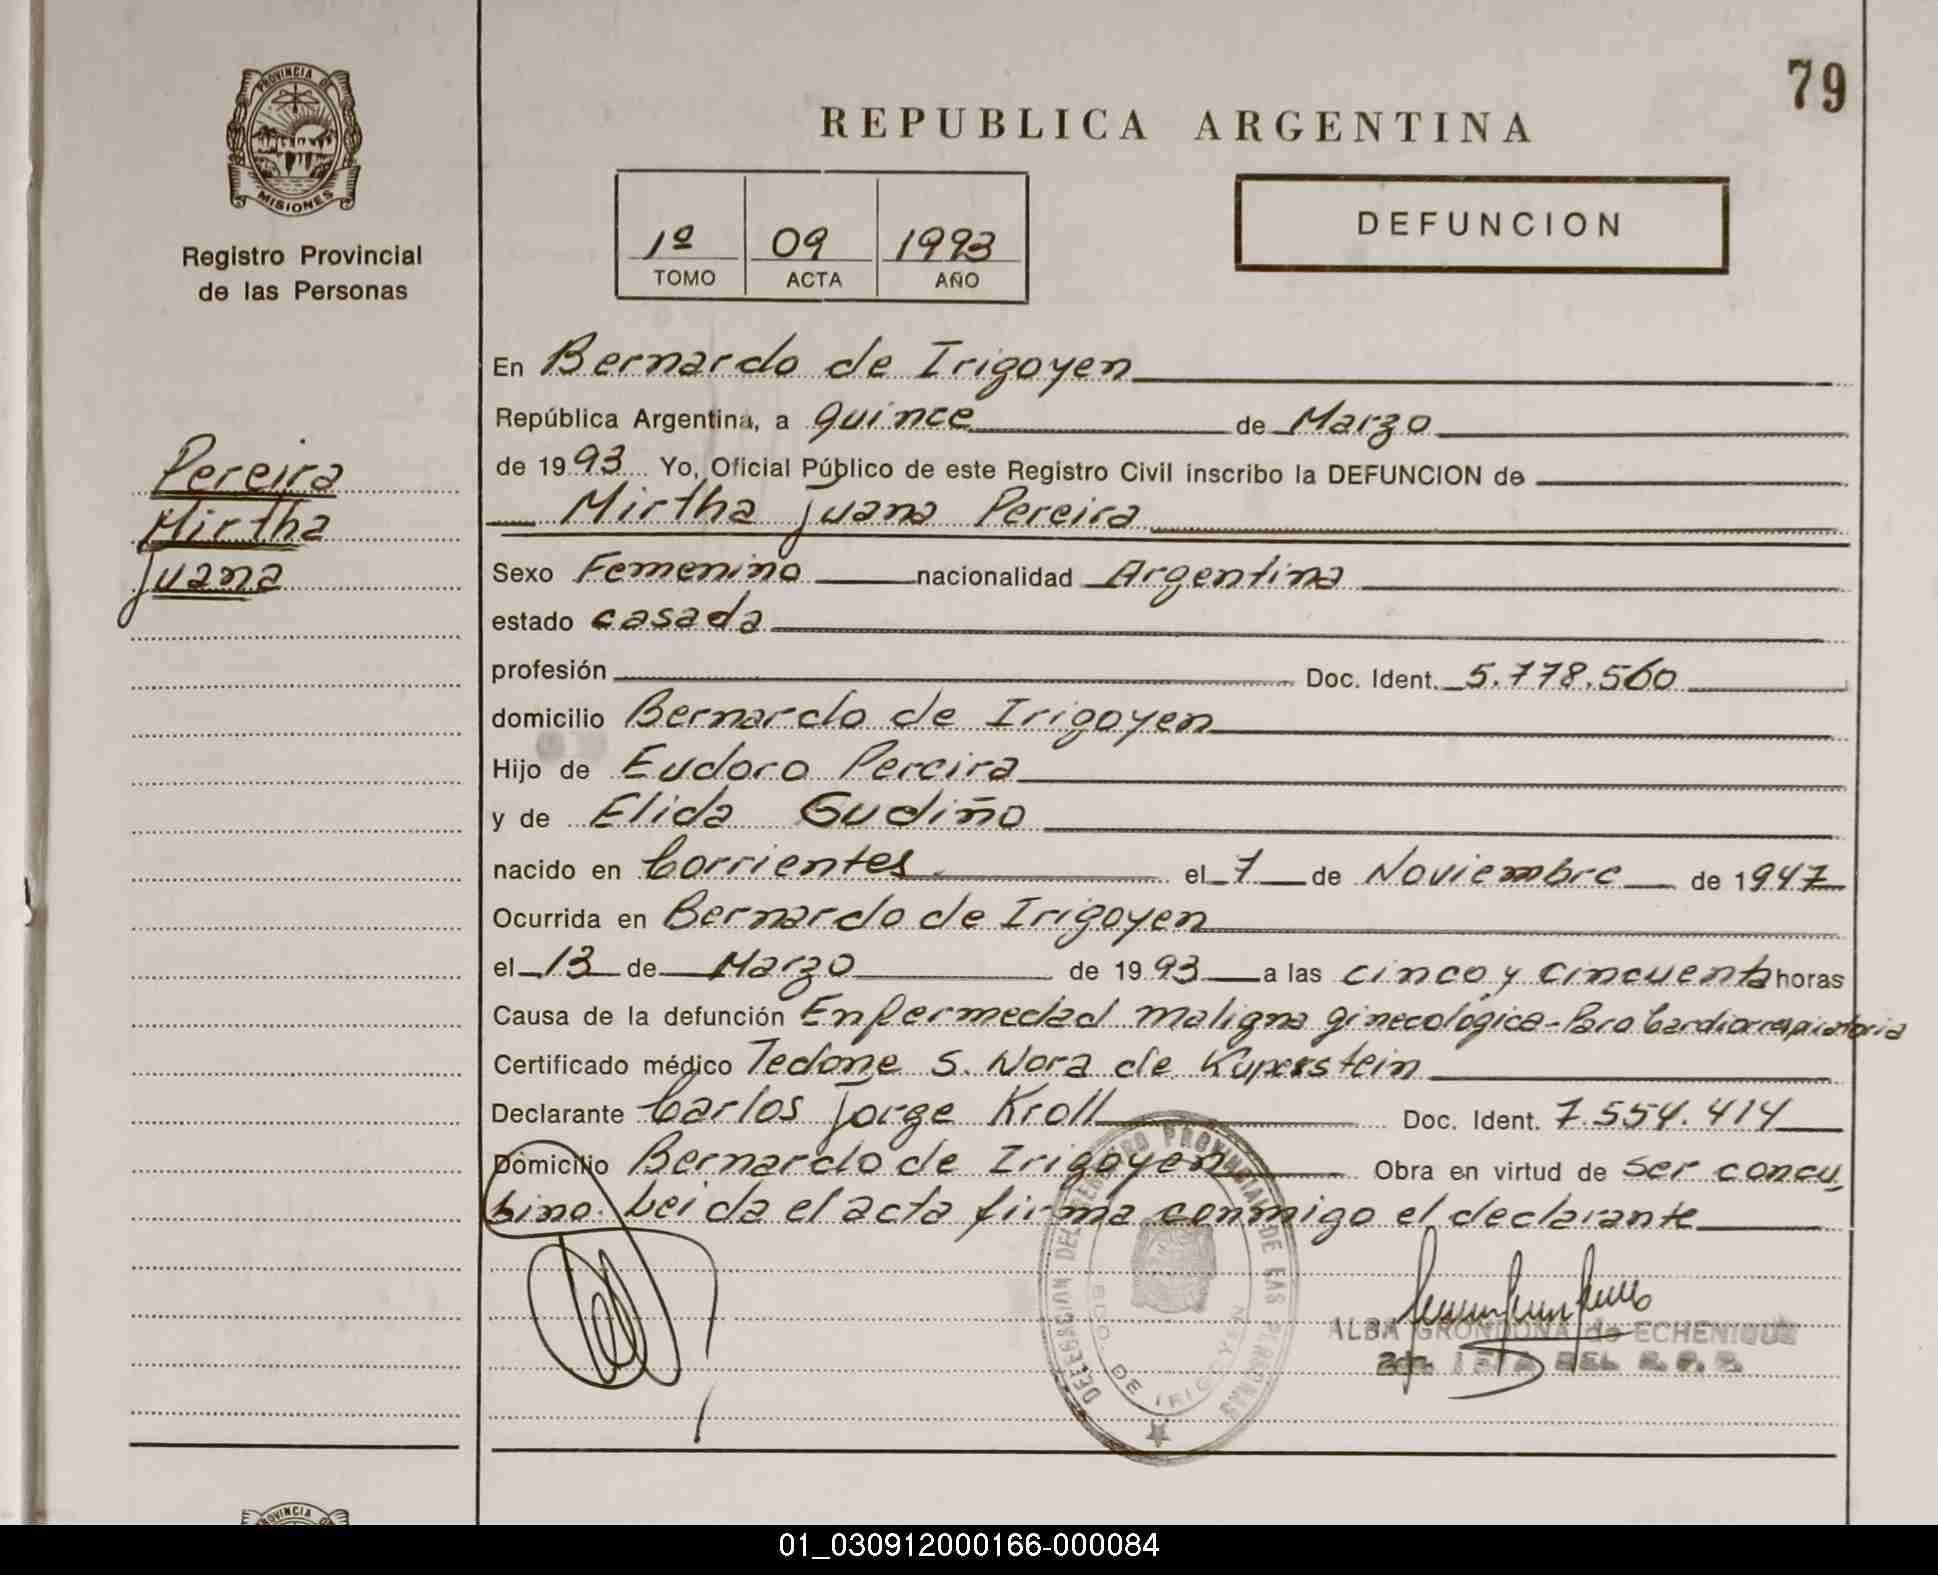 79
PROVINCIA DE
MISIONES
Registro Provincial
de las Personas
REPUBLICA ARGENTINA
1º 09 1993
TOMO ACTA AÑO
DEFUNCION
Pereira
Mirtha
Juana
En Bernardo de Irigoyen
República Argentina, a quince de Marzo
de 1993 Yo, Oficial Público de este Registro Civil inscribo la DEFUNCION de
Mirtha Juana Pereira
Sexo Femenino nacionalidad Argentina
estado casada
profesión Doc. Ident. 5.778.560
domicilio Bernardo de Irigoyen
Hijo de Eudoro Pereira
y de Elida Gudiño
nacido en Corrientes el 7 de Noviembre de 1947
Ocurrida en Bernardo de Irigoyen
el 13 de Marzo de 1993 a las cinco y cincuenta horas
Causa de la defunción Enfermedad maligna ginecológica - Paro Cardiorrespiratoria
Certificado médico Tedone S. Nora de Kuperstein
Declarante Carlos Jorge Kroll Doc. Ident. 7.554.414
Domicilio Bernardo de Irigoyen Obra en virtud de ser concu
bino. Leida el acta firma conmigo el declarante
DELEGACION DEL REGISTRO PROVINCIAL DE LAS PERSONAS
BDO. DE IRIGOYEN
ALBA GRONDONA de ECHENIQUE
DEL R. P. P.
PROVINCIA DE
01_030912000166-000084